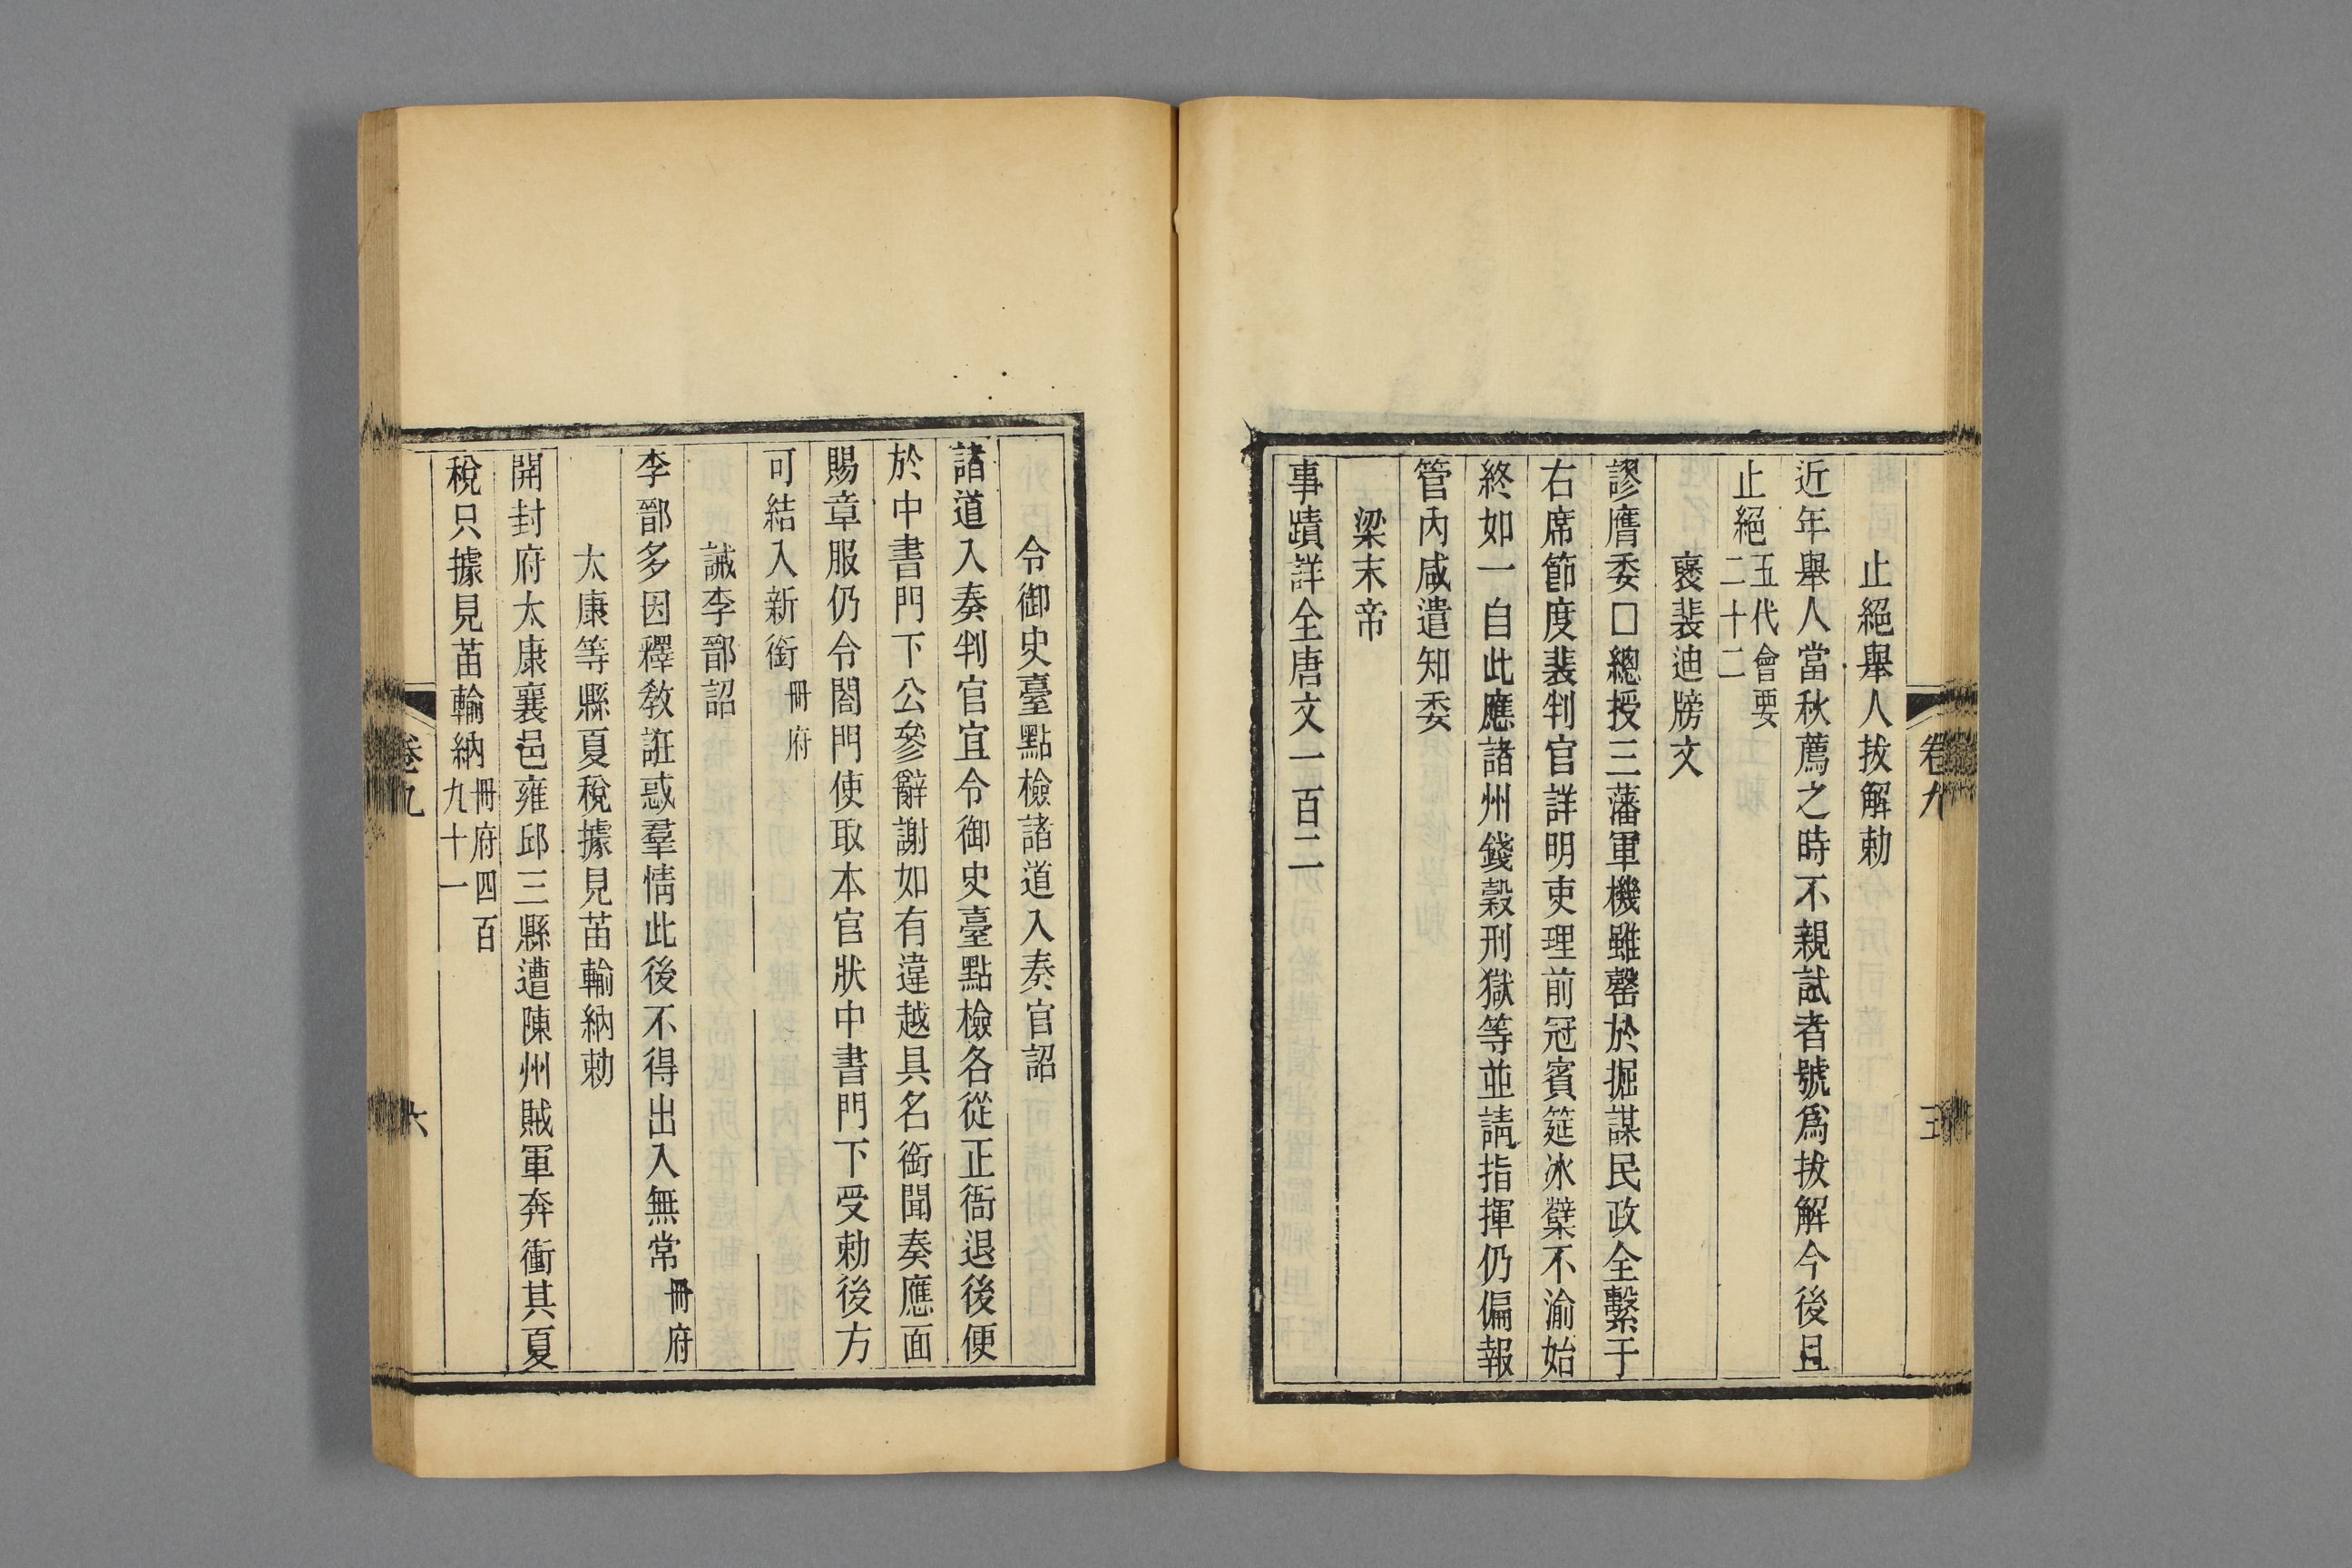 卷九
五
止絕舉人拔解勅
近年舉人當秋薦之時不親試者號爲拔解今後且
止絕五代會要二十二
褒裴迪牓文
謬膺委□總授三藩軍機雖罄於掘謀民政全繫于
右席節度裴判官詳明吏理前冠賓筵冰櫱不渝始
終如一自此應諸州錢穀刑獄等並請指揮仍徧報
管內咸遣知委
梁末帝
事蹟詳全唐文一百二
令御史臺點檢諸道入奏官詔
諸道入奏判官宜令御史臺點檢各從正衙退後便
於中書門下公參辭謝如有違越具名銜聞奏應面
賜章服仍令閤門使取本官狀中書門下受勅後方
可結入新銜冊府
誡李郚詔
李郚多因釋敎誑惑羣情此後不得出入無常冊府
太康等縣夏稅據見苗輸納勅
開封府太康襄邑雍邱三縣遭陳州賊軍奔衝其夏
稅只據見苗輸納冊府四百九十一
卷九
六